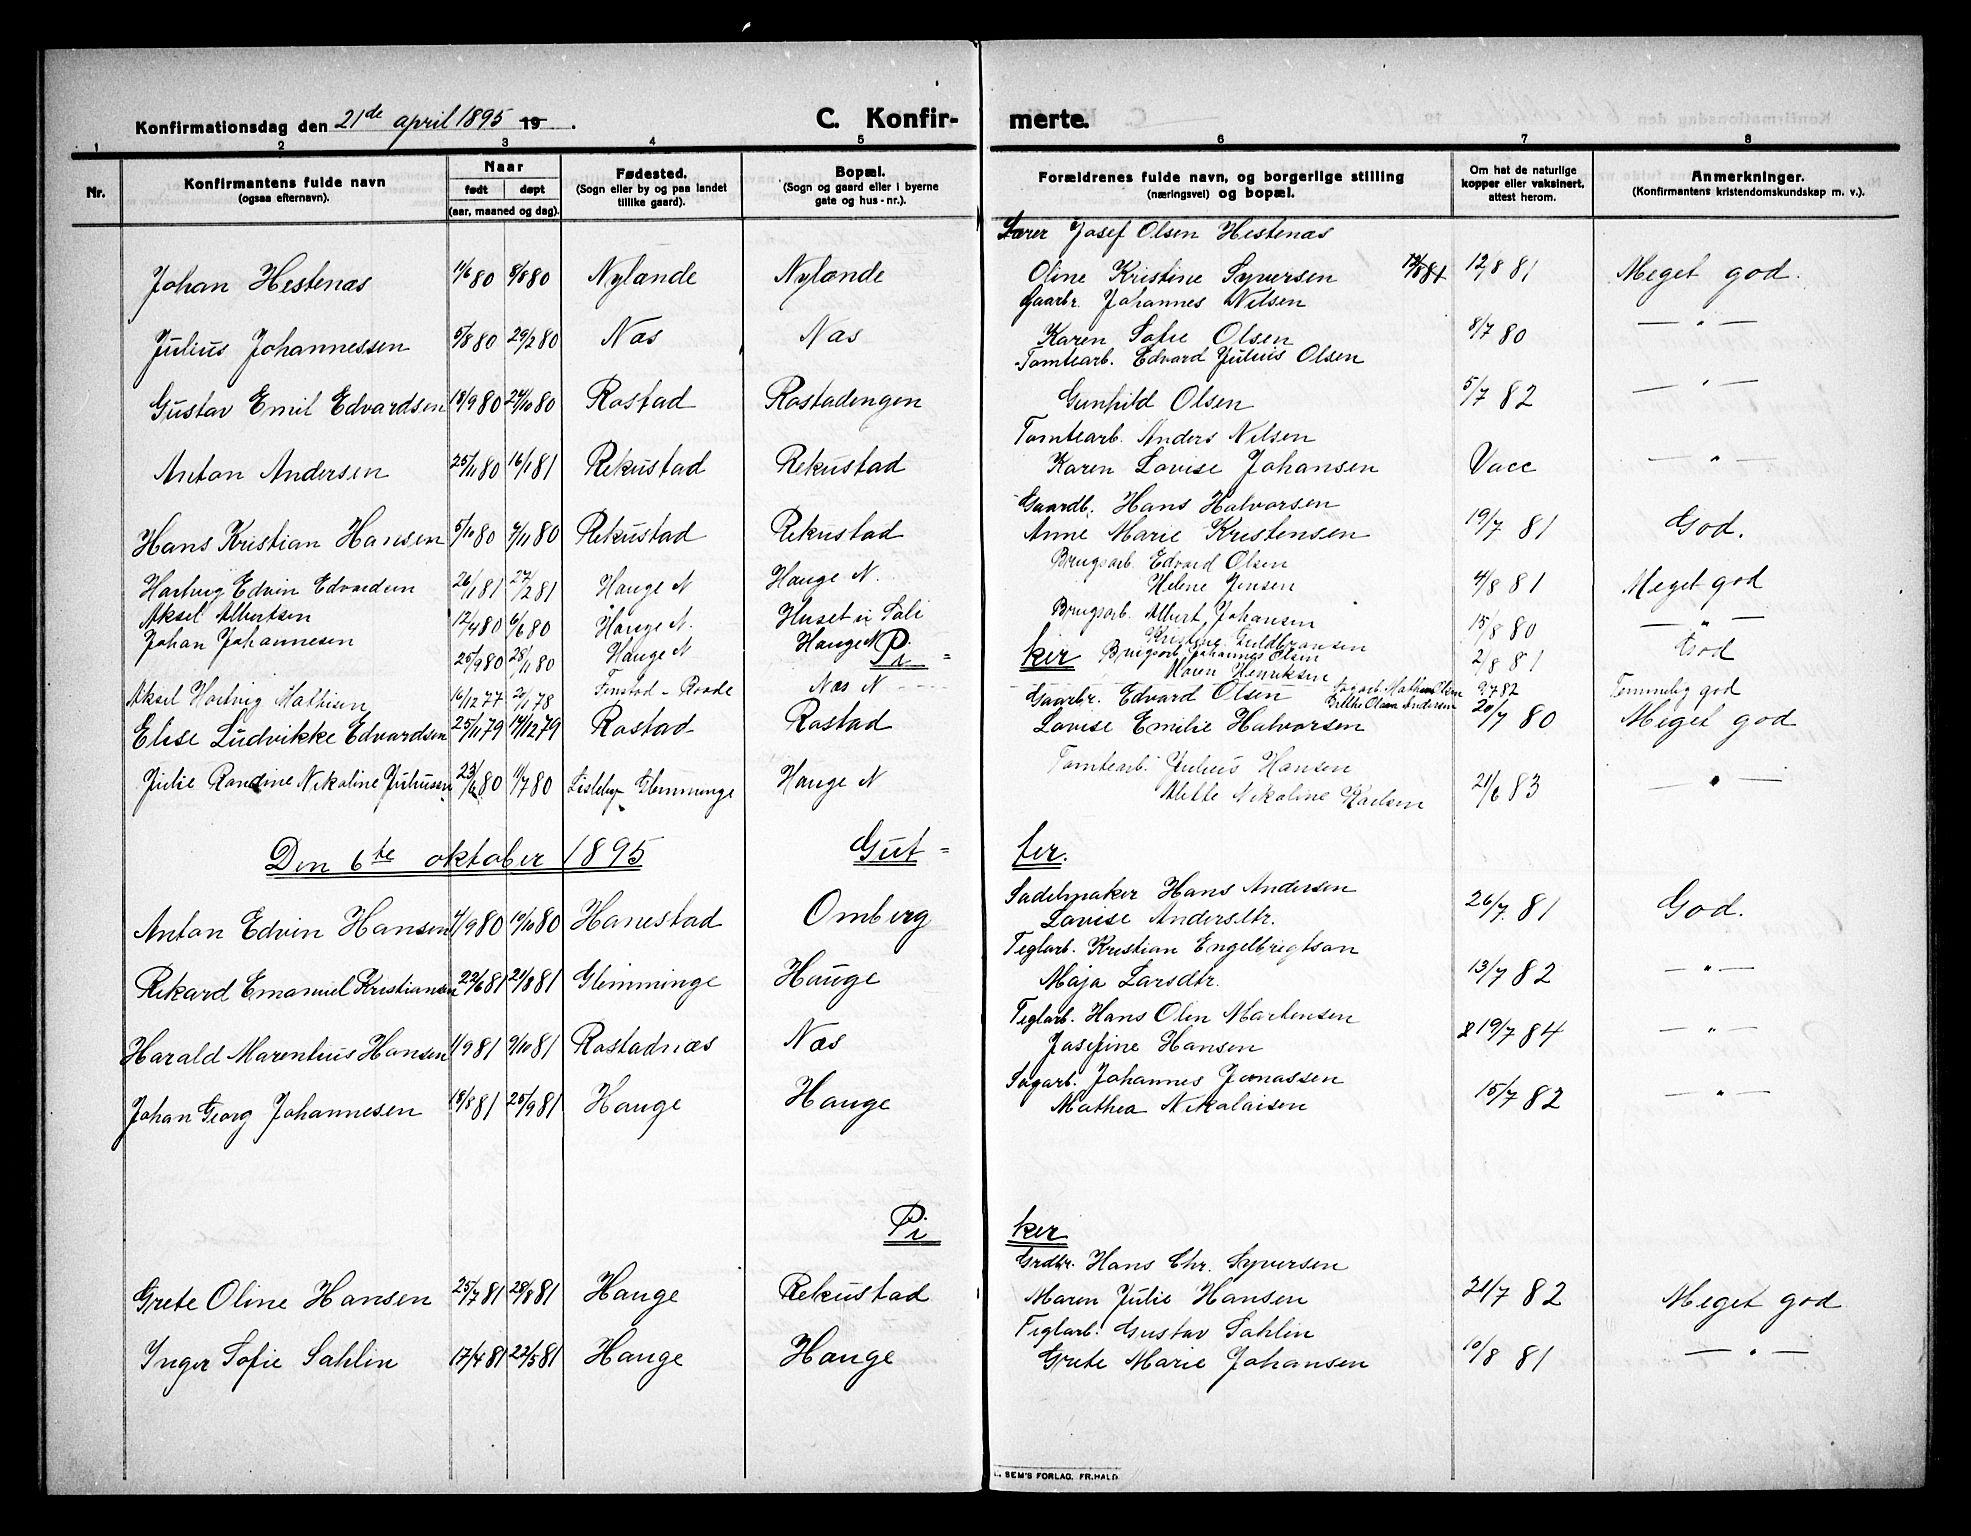 Konfirmationsdag den 21de april 1895 19 . C. Konfir- merte.
1 2 3 4 5 6 7 8
Nr. Konfirmantens fulde navn (ogsaa efternavn). Naar født døpt (aar, maaned og dag). Fødested. (Sogn eller by og paa landet tillike gaard). Bopæl. (Sogn og gaard eller i byerne gate og hus-nr.). Forældrenes fulde navn, og borgerlige stilling (næringsvei) og bopæl. Om hat de naturlige kopper eller vaksinert, attest herom. Anmerkninger. (Konfirmantens kristendomskundskap m. v.).
Lærer Josef Olsen Hestenæs
Johan Hestenæs 11/6 80 8/8 80 Nylænde Nylænde Oline Kristine Syversen 12/8 81 12/8 81 Meget god.
Gaarbr. Johannes Nilsen
Julius Johannessen 5/8 80 29/2 80 Næs Næs Karen Sofie Olsen 8/7 80 — " —
Tomtearb. Edvard Julius Olsen
Gustav Emil Edvardsen 18/9 80 24/10 80 Rostad Rostadengen Gunhild Olsen 5/7 82 — " —
Tomtearb. Anders Nilsen
Anton Andersen 25/11 80 16/1 81 Rekustad Rekustad Karen Lovise Johansen Vacc — " —
Gaardb. Hans Halvorsen
Hans Kristian Hansen 5/10 80 7/11 80 Rekustad Rekustad Anne Marie Kristensen 19/7 81 God.
Brugsarb. Edvard Olsen
Hartvig Edvin Edvardsen 26/1 81 27/2 81 Hauge N Hauge N. Helene Jensen 4/8 81 Meget god
Aksel Albertsen 12/4 80 6/6 80 Hauge N. Huset i Sali Brugsarb. Albert Johansen 15/8 80 — " —
Kristine Guldbransen
Johan Johannesen 25/9 80 28/11 80 Hauge N Hauge N Brugsarb. Johannes Olsen 2/8 81 God
Maren Henriksen
Pi = ker
Aksel Hartvig Mathisen 16/12 77 20/1 78 Finstad - Raade Næs N Sagarb. Mathias Olsen 9/7 82 Temmelig god
Gaarbr. Edvard Olsen
Elise Ludvikke Edvardsen 25/11 79 14/12 79 Rostad Rostad Lovise Emilie Halvorsen 20/7 80 Meget god
Tomtearb. Julius Hansen
Julie Randine Nikoline Juliussen 23/6 80 11/7 80 Lisleby - Glemminge Hauge N Alette Nikoline Karlsen 21/6 83 — " —
Den 6te oktober 1895 Gut = ter.
Sadelmaker Hans Andersen
Anton Edvin Hansen 4/9 80 10/10 80 Hanestad Omberg Lovise Andersdtr. 26/7. 81 God.
Teglarb. Kristian Engelbregtson
Rikard Emanuel Kristiansen 22/6 81 21/8 81 Glemminge Hauge Maja Larsdtr. 13/7 82 — " —
Teglarb. Hans Olen Martensen
Harald Marenhius Hansen 1/9 81 9/10 81 Rostadnæs Næs Josefine Hansen 19/7 84 — " —
Sagarb. Johannes Jonassen
Johan Georg Johannesen 18/8 81 25/9 81 Hauge Hauge Mathea Nikolaisen 15/7 82 — " —
Pi ker
Grdbr. Hans Chr. Syversen
Grete Oline Hansen 25/7 81 28/8 81 Hauge Rekustad Maren Julie Hansen 21/7 82 Meget god
Teglarb. Gustav Sahlin
Inger Sofie Sahlin 17/4 81 22/5 81 Hauge Hauge Grete Marie Johansen 10/8 81 — " —
SEM'S FORLAG, FR.HALD